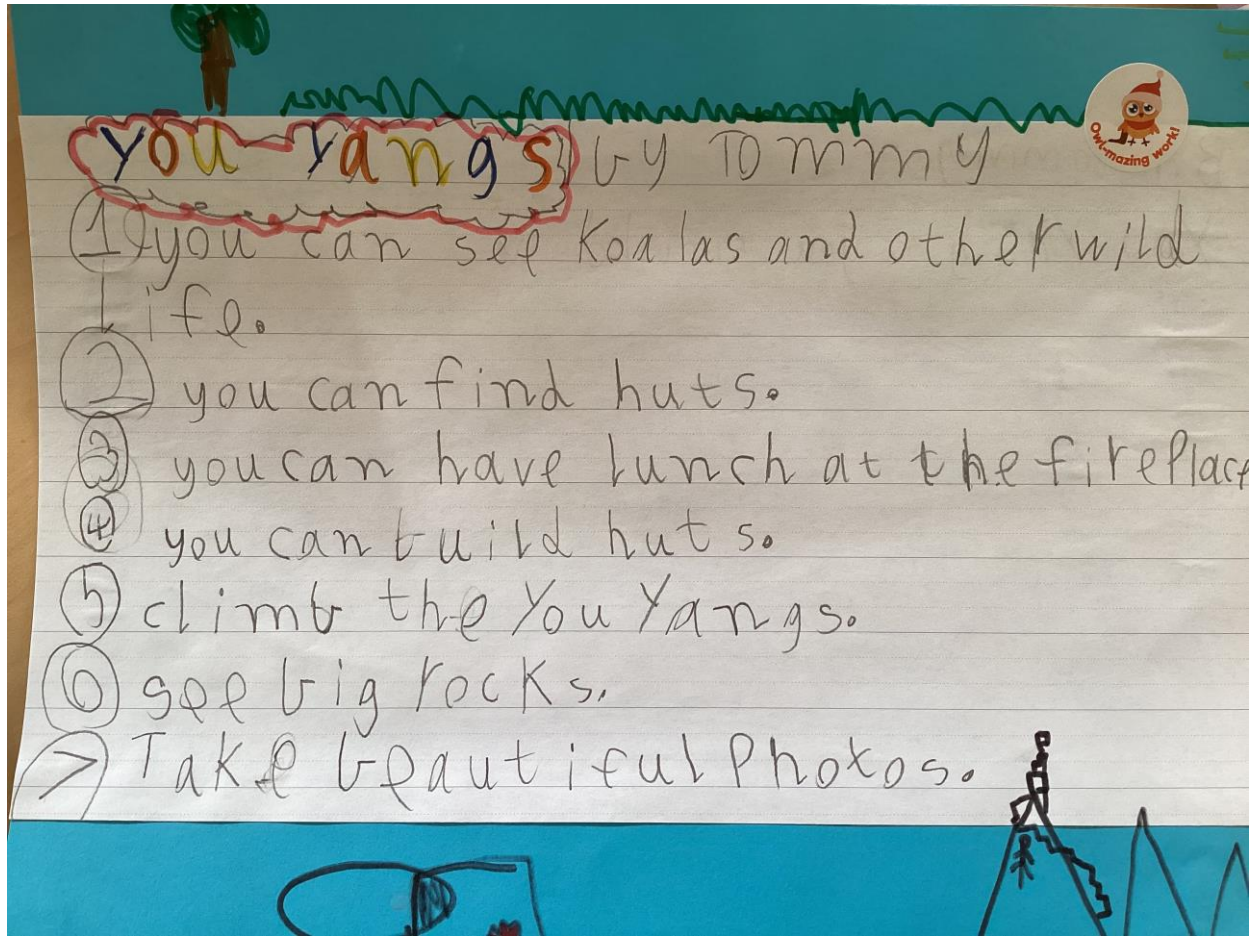 you yangs by Tommy
Owl-mazing work!
1 you can see koalas and other wild
life.
2 you can find huts.
3 you can have lunch at the fireplace
4 you can build huts.
5 climb the You Yangs.
6 see big rocks.
7 Take beautiful Photos.